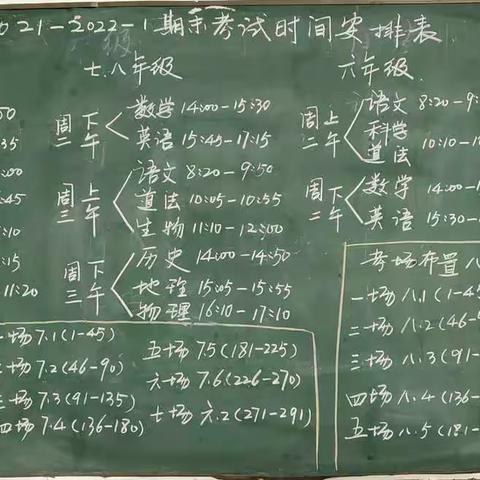 021-2022-1期末考试时间安排表
七.八年级
六年级
周二下午 数学 14:00-15:30
英语 15:45-17:15
周三上午 语文 8:20-9:50
道法 10:05-10:55
生物 11:10-12:00
周三下午 历史 14:00-14:50
地理 15:05-15:55
物理 16:10-17:10
周二上午 语文 8:20-9:
科学
道法 10:10-10
周二下午 数学 14:00-1
英语 15:30-
50
35
:00
:45
:10
:15
11:20
一场 7.1(1-45)
二场 7.2(46-90)
三场 7.3(91-135)
四场 7.4(136-180)
五场 7.5(181-225)
六场 7.6(226-270)
七场 六.2(271-291)
考场布置 八
一场 八.1(1-45
二场 八.2(46-
三场 八.3(91-
四场 八.4(136-
五场 八.5(181-